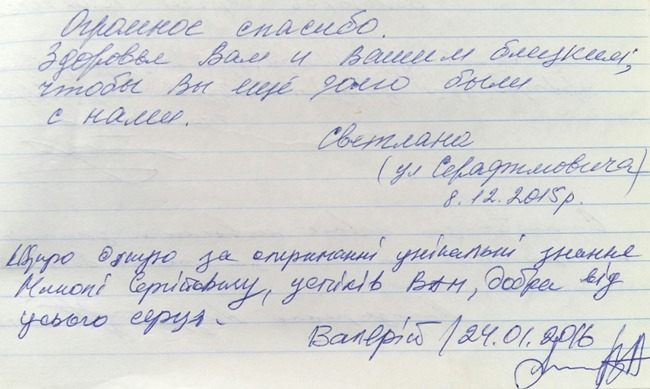 Огромное спасибо.
Здоровья Вам и Вашим близким,
чтобы Вы ещё долго были
с нами.
Светлана
(ул Серафимовича)
8.12.2015р.
Щиро дякую за отриманні унікальні знання
Миколі Сергійовичу, успіхів ВАМ, добра від
усього серця.
Валерій / 24.01.2016